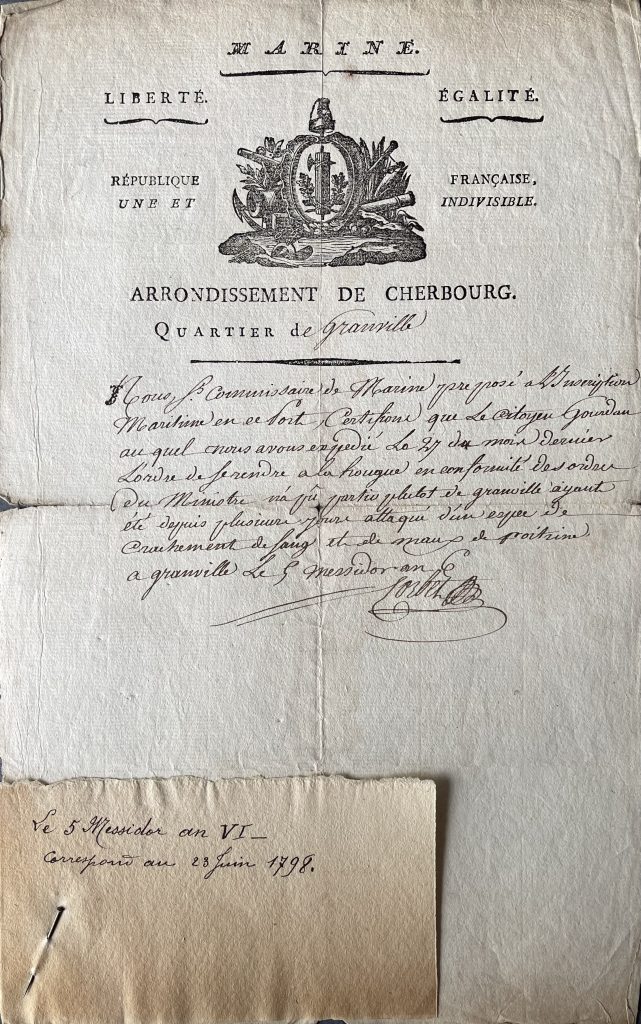 MARINE.
LIBERTÉ. ÉGALITÉ.
RÉPUBLIQUE FRANÇAISE,
UNE ET INDIVISIBLE.
ARRONDISSEMENT DE CHERBOURG.
QUARTIER de Granville
Nous, S. Commissaire de Marine preposé a L'Inscription
Maritime en ce Port, Certifions que Le Citoyen Gourdan
au quel nous avons expedié Le 27 du mois dernier
L'ordre de se rendre a la hougue en conformité des ordres
Du Ministre n'a pû partir plutot de granville ayant
été depuis plusieurs jours attaqué d'un espece de
Crachement de Sang et de maux de poitrine
a granville Le 5 Messidor an 6
Le 5 Messidor an VI_
Correspond au 23 Juin 1798.